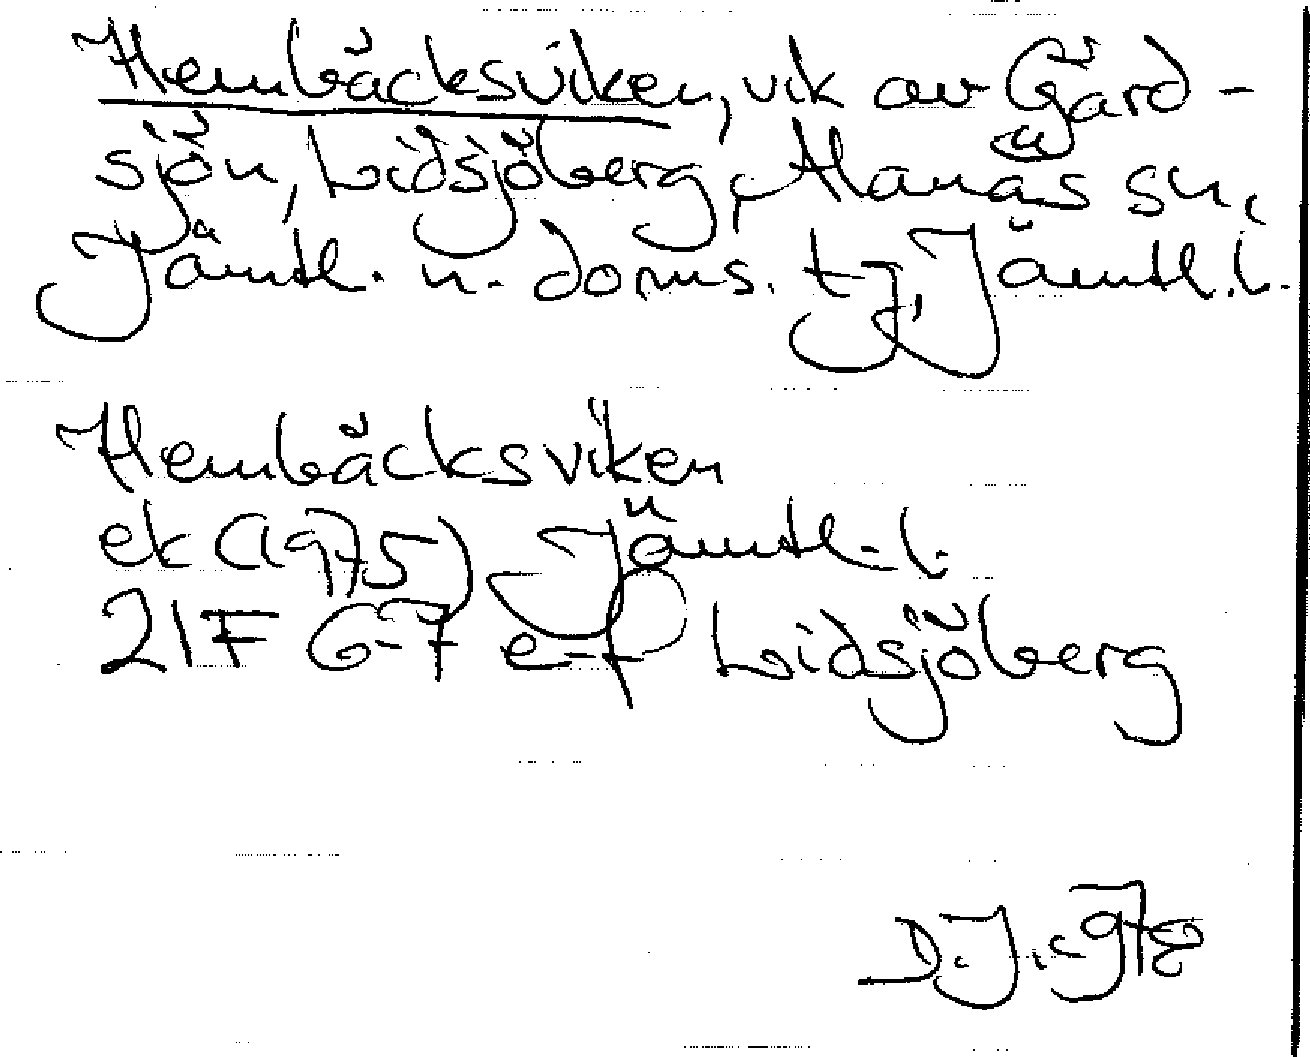 Hembäcksviken, vik av Gärd-
sjön, Lidsjöberg, Alanäs sn,
Jämtl. n. doms. tj, Jämtl.l.
Hembäcksviken
ek (1975) Jämtl.l.
21F 6-7 e-f Lidsjöberg
D.J. 1978